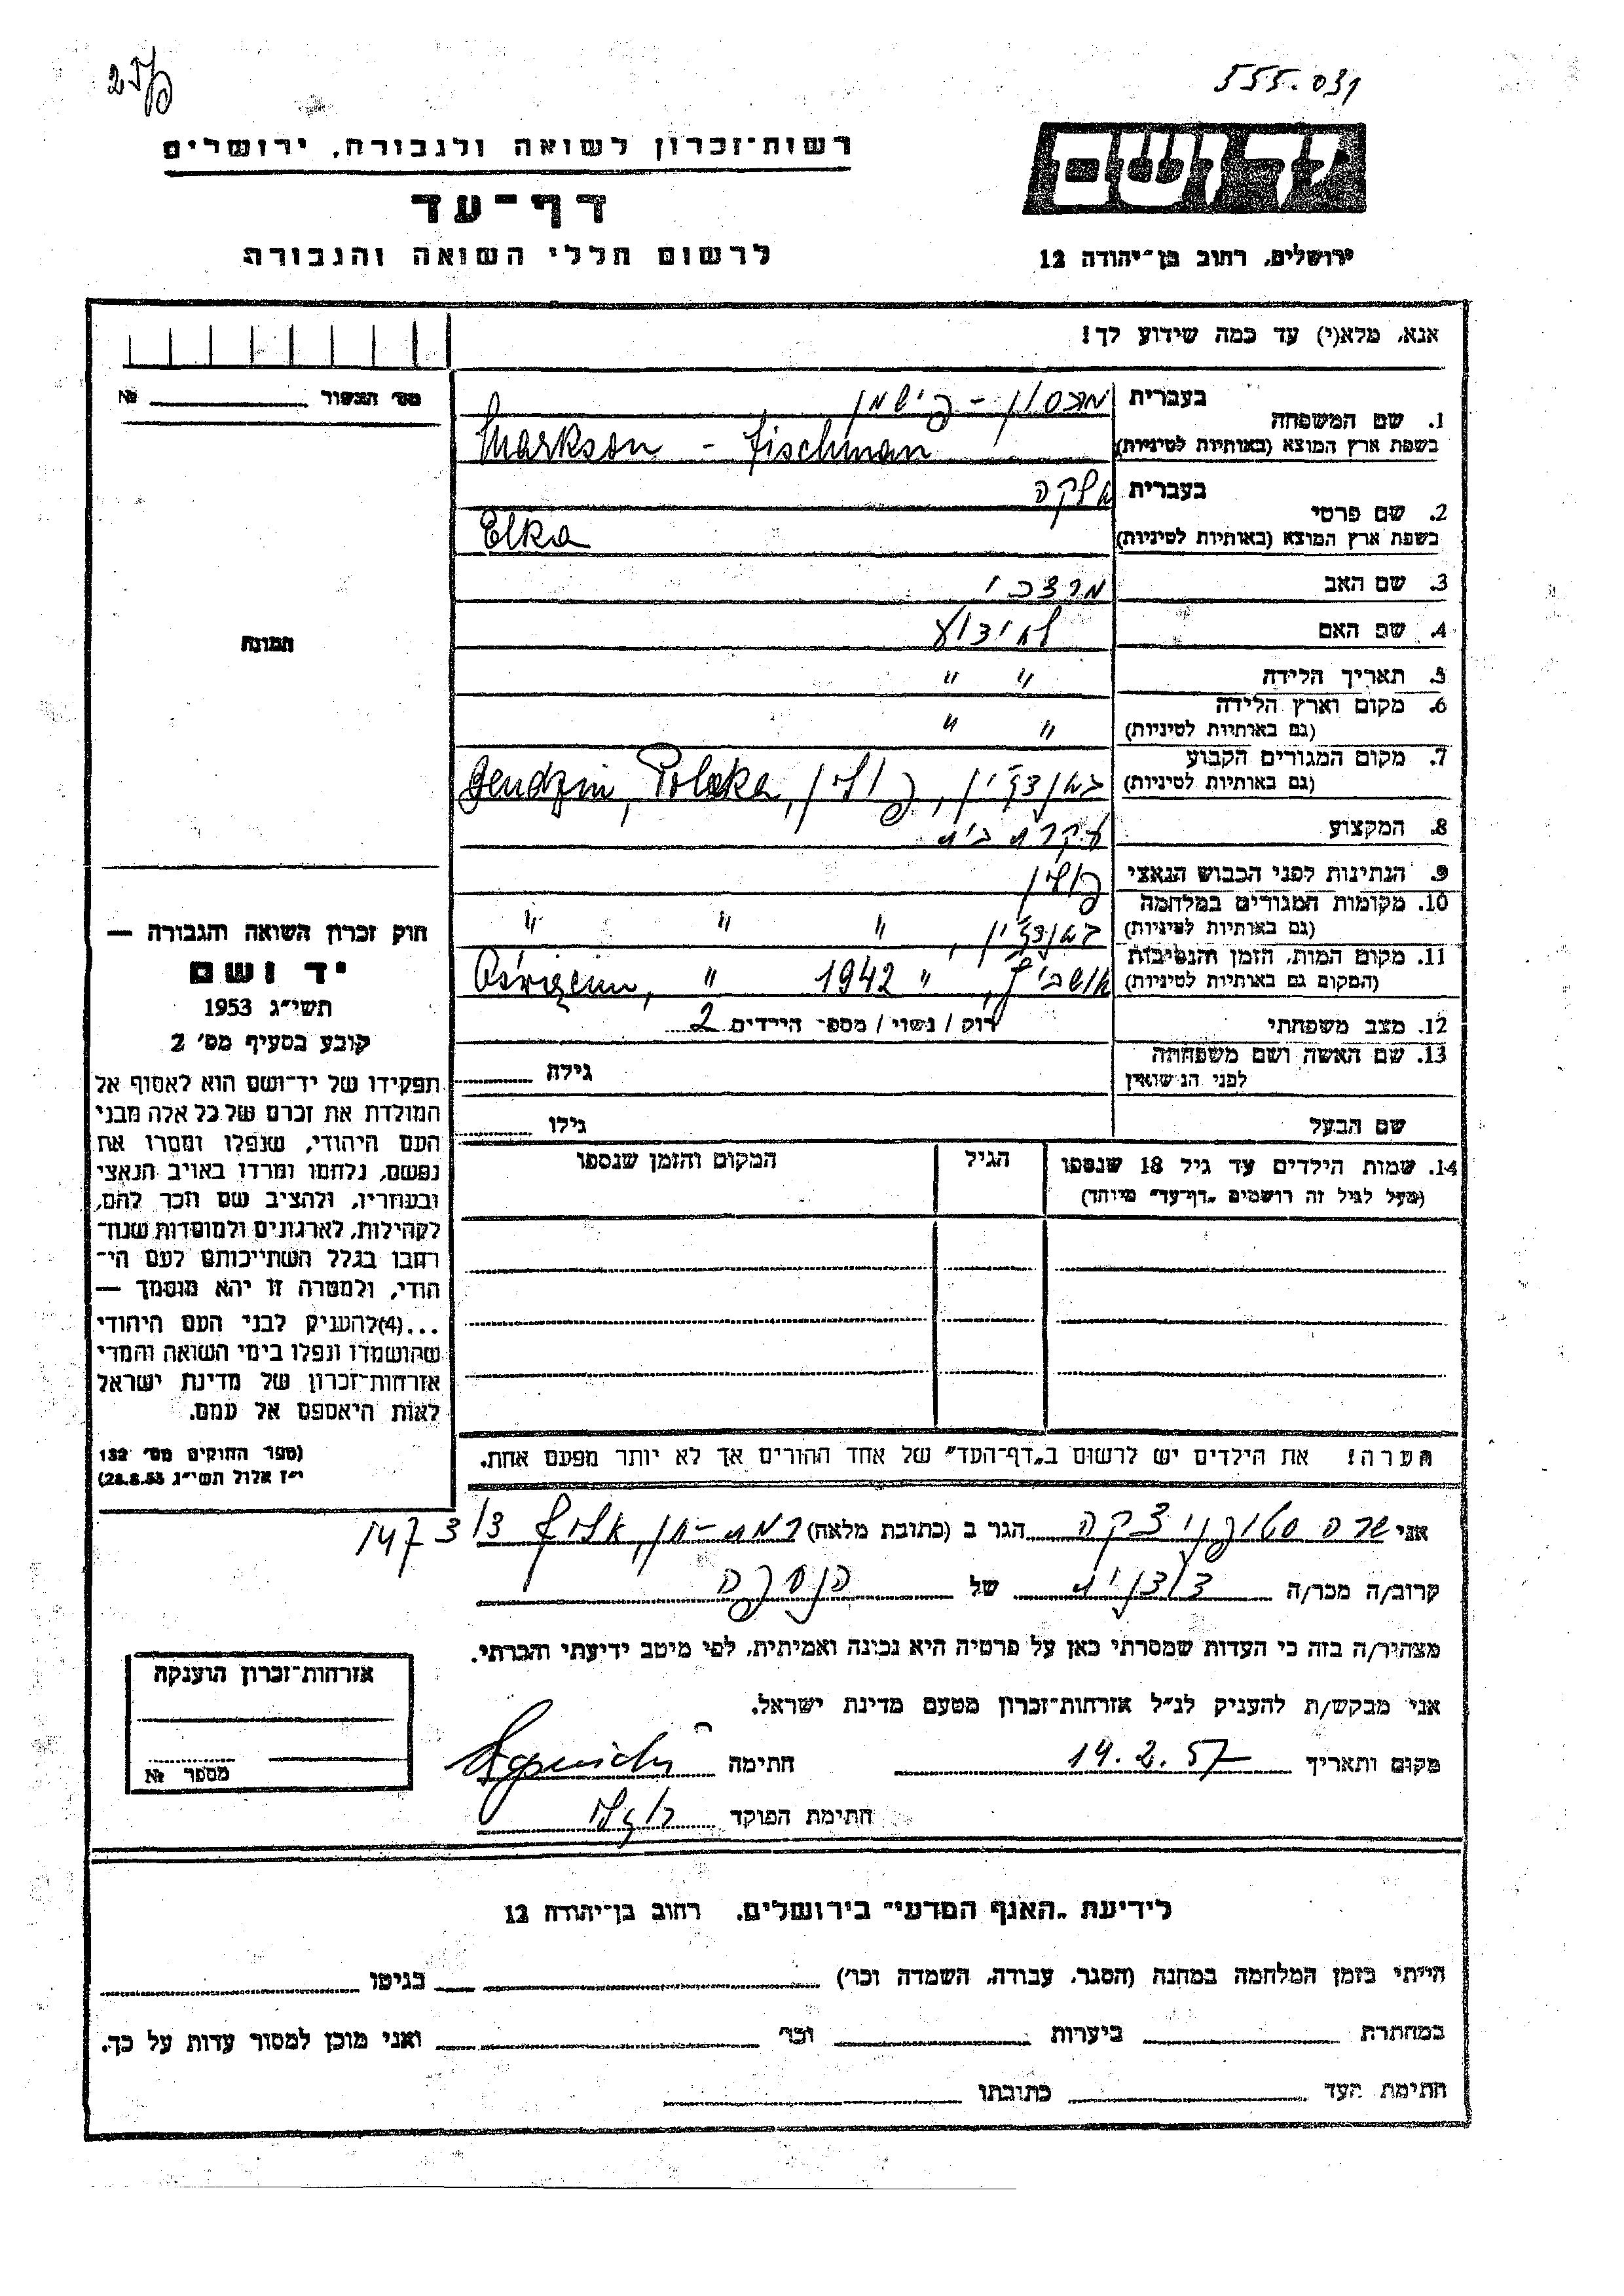 555.031
רשות־זכרון לשואה ולגבורה, ירושלים
דף־עד
לרשום חללי השואה והגבורה
יד ושם
ירושלים, רחוב בן־יהודה 12
אנא, מלא(י) עד כמה שידוע לך!
מס' הצפור № 
1. שם המשפחה
בעברית מרכסון - פישמן
בשפת ארץ המוצא (באותיות לטיניות) Markson - Fischman
2. שם פרטי
בעברית אלקה
בשפת ארץ המוצא (באותיות לטיניות) Elka
3. שם האב מרדכי
4. שם האם לא ידוע
5. תאריך הלידה " "
6. מקום וארץ הלידה " "
(גם באותיות לטיניות)
7. מקום המגורים הקבוע
(גם באותיות לטיניות) בענדז'ין, פולין, Bendzin, Polska
8. המקצוע עקרת בית
9. הנתינות לפני הכבוש הנאצי פולין
10. מקומות המגורים במלחמה
(גם באותיות לטיניות) בענדז'ין, " " "
11. מקום המות, הזמן והנסיבות
(המקום גם באותיות לטיניות) אושביץ, " 1942 " Oświęcim,
12. מצב משפחתי רוק / נשוי / מספר הילדים 2
13. שם האשה ושם משפחתה
לפני הנשואין גילה
שם הבעל גילו
14. שמות הילדים עד גיל 18 שנספו הגיל המקום והזמן שנספו
(מעל לגיל זה רושמים „דף־עד" מיוחד)
תמונה
חוק זכרון השואה והגבורה —
יד ושם
תשי"ג 1953
קובע בסעיף מס' 2
תפקידו של יד־ושם הוא לאסוף אל
המולדת את זכרם של כל אלה מבני
העם היהודי, שנפלו ומסרו את
נפשם, נלחמו ומרדו באויב הנאצי
ובעוזריו, ולהציב שם וזכר להם,
לקהילות, לארגונים ולמוסדות שנח־
רבו בגלל השתייכותם לעם הי־
הודי, ולמטרה זו יהא מוסמך —
...(4) להעניק לבני העם היהודי
שהושמדו ונפלו בימי השואה והמרי
אזרחות־זכרון של מדינת ישראל
לאות היאספם אל עמם.
(ספר החוקים מס' 132
י"ז אלול תשי"ג 28.8.53)
הערה! את הילדים יש לרשום ב„דף־העד" של אחד ההורים אך לא יותר מפעם אחת.
אני שרה הגר ב (כתובת מלאה) רמת-גן, 3/3
קרוב/ה מכר/ה של הנספה
מצהיר/ה בזה כי העדות שמסרתי כאן על פרטיה היא נכונה ואמיתית, לפי מיטב ידיעתי והכרתי.
אני מבקש/ת להעניק לנ"ל אזרחות־זכרון מטעם מדינת ישראל.
מקום ותאריך 19.2.57 חתימה
חתימת הפוקד
אזרחות־זכרון הוענקה
מספר №
לידיעת „האגף המדעי" בירושלים, רחוב בן־יהודה 12
הייתי בזמן המלחמה במחנה (הסגר, עבודה, השמדה וכו') בגיטו
במחתרת ביערות וכו' ואני מוכן למסור עדות על כך.
חתימת העד כתובתו